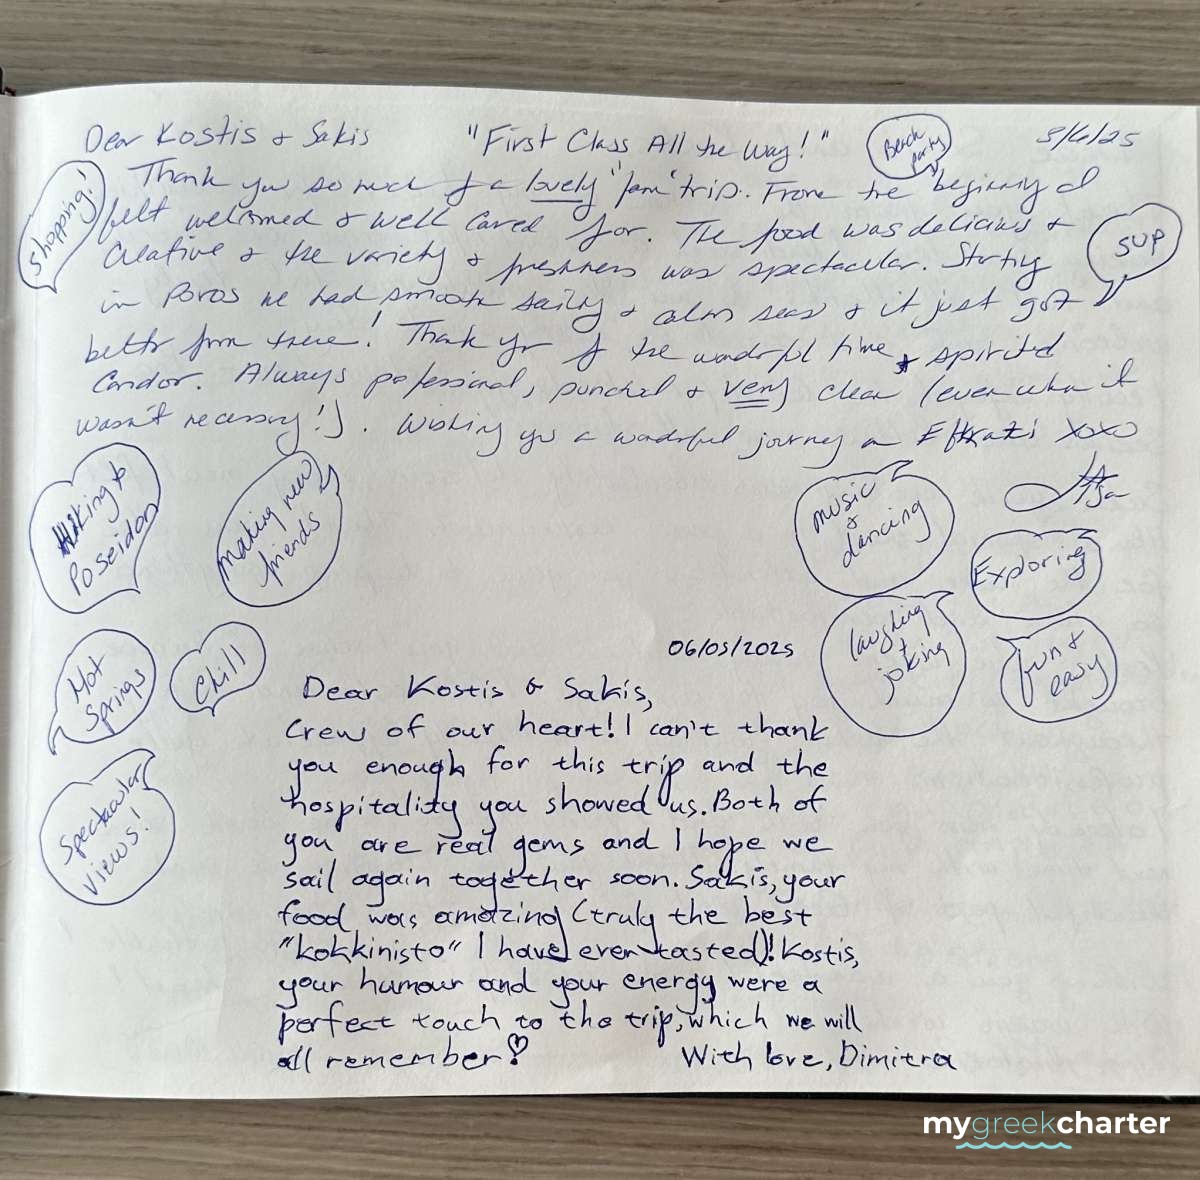 Dear Kostis & Sakis
"First Class All the Way!"
Beach party
5/6/25
Shopping!
Thank you so much for a lovely 'fam' trip. From the beginning I
felt welcomed & well cared for. The food was delicious &
Creative & the variety & freshness was spectacular. Starting
SUP
in Poros we had smooth sailing & calm seas & it just got
better from there! Thank you for the wonderful time & spirited
Candor. Always professional, punctual & very clean (even when it
wasn't necessary!). Wishing you a wonderful journey on Eftratis xoxo
Hiking to Poseidon
making new friends
music & dancing
Exploring
Hot Springs
Chill
laughing + joking
fun & easy
Spectacular views!
06/05/2025
Dear Kostis & Sakis,
Crew of our heart! I can't thank
you enough for this trip and the
hospitality you showed us. Both of
you are real gems and I hope we
sail again together soon. Sakis, your
food was amazing (truly the best
"kokkinisto" I have ever tasted)! Kostis,
your humour and your energy were a
perfect touch to the trip, which we will
all remember!
With love, Dimitra
mygreekcharter